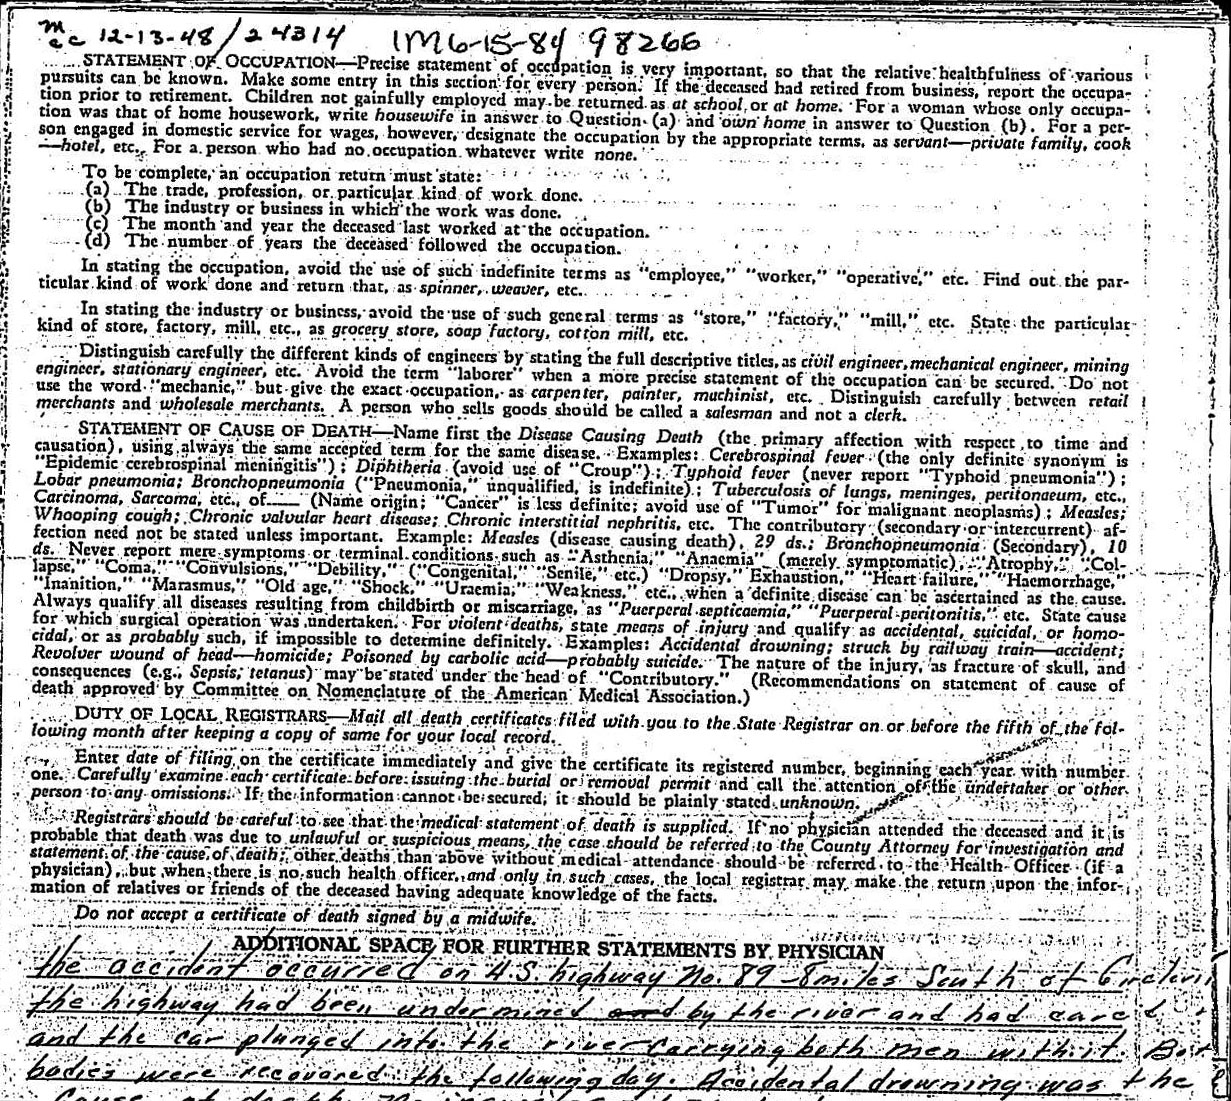 12-13-48/24314 1M6-15-84 98266
STATEMENT OF OCCUPATION—Precise statement of occupation is very important, so that the relative healthfulness of various
pursuits can be known. Make some entry in this section for every person. If the deceased had retired from business, report the occupa-
tion prior to retirement. Children not gainfully employed may be returned as at school or at home. For a woman whose only occupa-
tion was that of home housework, write housewife in answer to Question (a) and own home in answer to Question (b). For a per-
son engaged in domestic service for wages, however, designate the occupation by the appropriate terms, as servant—private family, cook
—hotel, etc. For a person who had no occupation whatever write none.
To be complete, an occupation return must state:
(a) The trade, profession, or particular kind of work done.
(b) The industry or business in which the work was done.
(c) The month and year the deceased last worked at the occupation.
(d) The number of years the deceased followed the occupation.
In stating the occupation, avoid the use of such indefinite terms as "employee," "worker," "operative," etc. Find out the par-
ticular kind of work done and return that, as spinner, weaver, etc.
In stating the industry or business, avoid the use of such general terms as "store," "factory," "mill," etc. State the particular
kind of store, factory, mill, etc., as grocery store, soap factory, cotton mill, etc.
Distinguish carefully the different kinds of engineers by stating the full descriptive titles, as civil engineer, mechanical engineer, mining
engineer, stationary engineer, etc. Avoid the term "laborer" when a more precise statement of the occupation can be secured. Do not
use the word "mechanic," but give the exact occupation, as carpenter, painter, machinist, etc. Distinguish carefully between retail
merchants and wholesale merchants. A person who sells goods should be called a salesman and not a clerk.
STATEMENT OF CAUSE OF DEATH—Name first the Disease Causing Death (the primary affection with respect to time and
causation), using always the same accepted term for the same disease. Examples: Cerebrospinal fever (the only definite synonym is
"Epidemic cerebrospinal meningitis"); Diphtheria (avoid use of "Croup"); Typhoid fever (never report "Typhoid pneumonia");
Lobar pneumonia; Bronchopneumonia ("Pneumonia," unqualified, is indefinite); Tuberculosis of lungs, meninges, peritonaeum, etc.,
Carcinoma, Sarcoma, etc., of____ (Name origin; "Cancer" is less definite; avoid use of "Tumor" for malignant neoplasms); Measles;
Whooping cough; Chronic valvular heart disease; Chronic interstitial nephritis, etc. The contributory (secondary or intercurrent) af-
fection need not be stated unless important. Example: Measles (disease causing death), 29 ds.; Bronchopneumonia (Secondary), 10
ds. Never report mere symptoms or terminal conditions such as "Asthenia," "Anaemia" (merely symptomatic), "Atrophy," "Col-
lapse," "Coma," "Convulsions," "Debility," ("Congenital," "Senile, etc.) "Dropsy," Exhaustion," "Heart failure," "Haemorrhage,"
"Inanition," "Marasmus," "Old age," "Shock," "Uraemia," "Weakness," etc., when a definite disease can be ascertained as the cause.
Always qualify all diseases resulting from childbirth or miscarriage, as "Puerperal septicaemia," "Puerperal peritonitis," etc. State cause
for which surgical operation was undertaken. For violent deaths, state means of injury and qualify as accidental, suicidal, or homo-
cidal, or as probably such, if impossible to determine definitely. Examples: Accidental drowning; struck by railway train—accident;
Revolver wound of head—homicide; Poisoned by carbolic acid—probably suicide. The nature of the injury, as fracture of skull, and
consequences (e.g., Sepsis, tetanus) may be stated under the head of "Contributory." (Recommendations on statement of cause of
death approved by Committee on Nomenclature of the American Medical Association.)
DUTY OF LOCAL REGISTRARS—Mail all death certificates filed with you to the State Registrar on or before the fifth of the fol-
lowing month after keeping a copy of same for your local record.
Enter date of filing on the certificate immediately and give the certificate its registered number, beginning each year with number
one. Carefully examine each certificate before issuing the burial or removal permit and call the attention of the undertaker or other
person to any omissions. If the information cannot be secured, it should be plainly stated unknown.
Registrars should be careful to see that the medical statement of death is supplied. If no physician attended the deceased and it is
probable that death was due to unlawful or suspicious means, the case should be referred to the County Attorney for investigation and
statement of the cause of death; other deaths than above without medical attendance should be referred to the Health Officer (if a
physician), but when there is no such health officer, and only in such cases, the local registrar may make the return upon the infor-
mation of relatives or friends of the deceased having adequate knowledge of the facts.
Do not accept a certificate of death signed by a midwife.
ADDITIONAL SPACE FOR FURTHER STATEMENTS BY PHYSICIAN
the accident occurred on U.S. highway No. 89 8 miles South of Circlevi
the highway had been undermined by the river and had caved
and the car plunged into the river carrying both men with it. Both
bodies were recovered the following day. Accidental drowning was the
cause of death